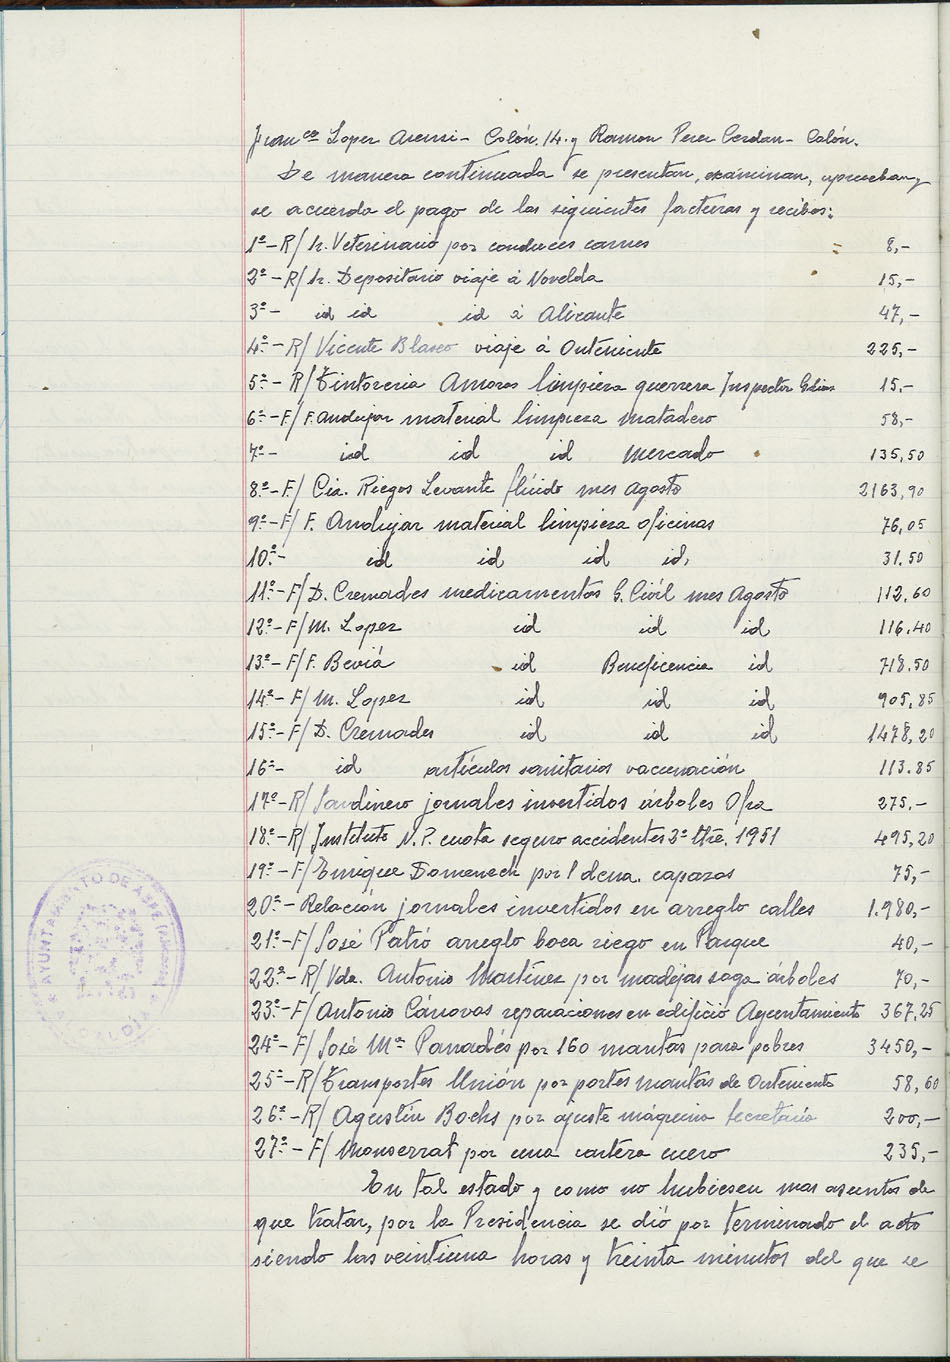 Franco Lopez Asensi - Colón. 14. y Ramon Perez Cerdan - Colón.
De manera continuada se presentan, examinan, aprueban y
se acuerda el pago de las siguientes facturas y recibos:
1º- R/ Sr. Veterinario por conducir carnes = 8,-
2º- R/ Sr. Depositario viaje á Novelda 15,-
3º- id id id á Alicante 47,-
4º- R/ Vicente Blasco viaje á Onteniente 225,-
5º- R/ Tintoreria Amoros limpieza guerrera Inspector 15,-
6º- F/ F. Andujar material limpieza matadero 58,-
7º- id id id Mercado 135,50
8º- F/ Cia. Riegos Levante flúido mes Agosto 2163,90
9º- F/ F. Andujar material limpieza oficinas 76,05
10º- id id id id, 31.50
11º- F/ D. Cremades medicamentos G. Civil mes Agosto 112,60
12º- F/ M. Lopez id id id 116.40
13º- F/ F. Beviá id Beneficencia id 718.50
14º- F/ M. Lopez id id id 905,85
15º- F/ D. Cremades id id id 1478,20
16º- id artículos sanitarios vacunación 113.85
17º- R/ Jardinero jornales invertidos árboles Ofra 275,-
18º- R/ Instituto N.P. cuota seguro accidentes 3º ttre. 1951 495,20
19º- F/ Enrique Domenech por 1 dcna. capazos 75,-
20º- Relación jornales invertidos en arreglo calles 1.980,-
21º- F/ José Patró arreglo boca riego en Parque 40,-
22º- R/ Vda. Antonio Martínez por madejas soga árboles 70,-
23º- F/ Antonio Cánovas reparaciones en edificio Ayuntamiento 367,25
24º- F/ José Mª Panadés por 160 mantas para pobres 3450,-
25º- R/ Transportes Unión por portes mantas de Onteniente 58,60
26º- R/ Agustín Bochs por ajuste máquina Secretaría 200,-
27º- F/ Monserrat por una cartera cuero 235,-
En tal estado y como no hubiesen mas asuntos de
que tratar, por la Presidencia se dió por terminado el acto
siendo las veintiuna horas y treinta minutos del que se
AYUNTAMIENTO DE ASPE (Alicante)
ALCALDIA